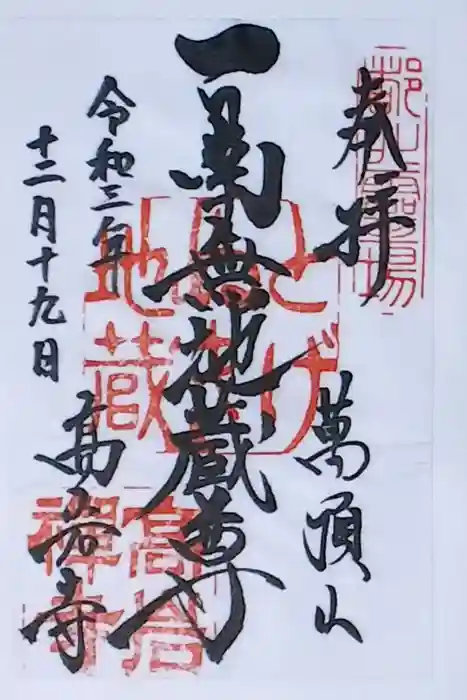 奉拝
萬頂山
南無地蔵尊
令和三年
十二月十九日
髙岩寺
とげ
地蔵
高岩
禪寺